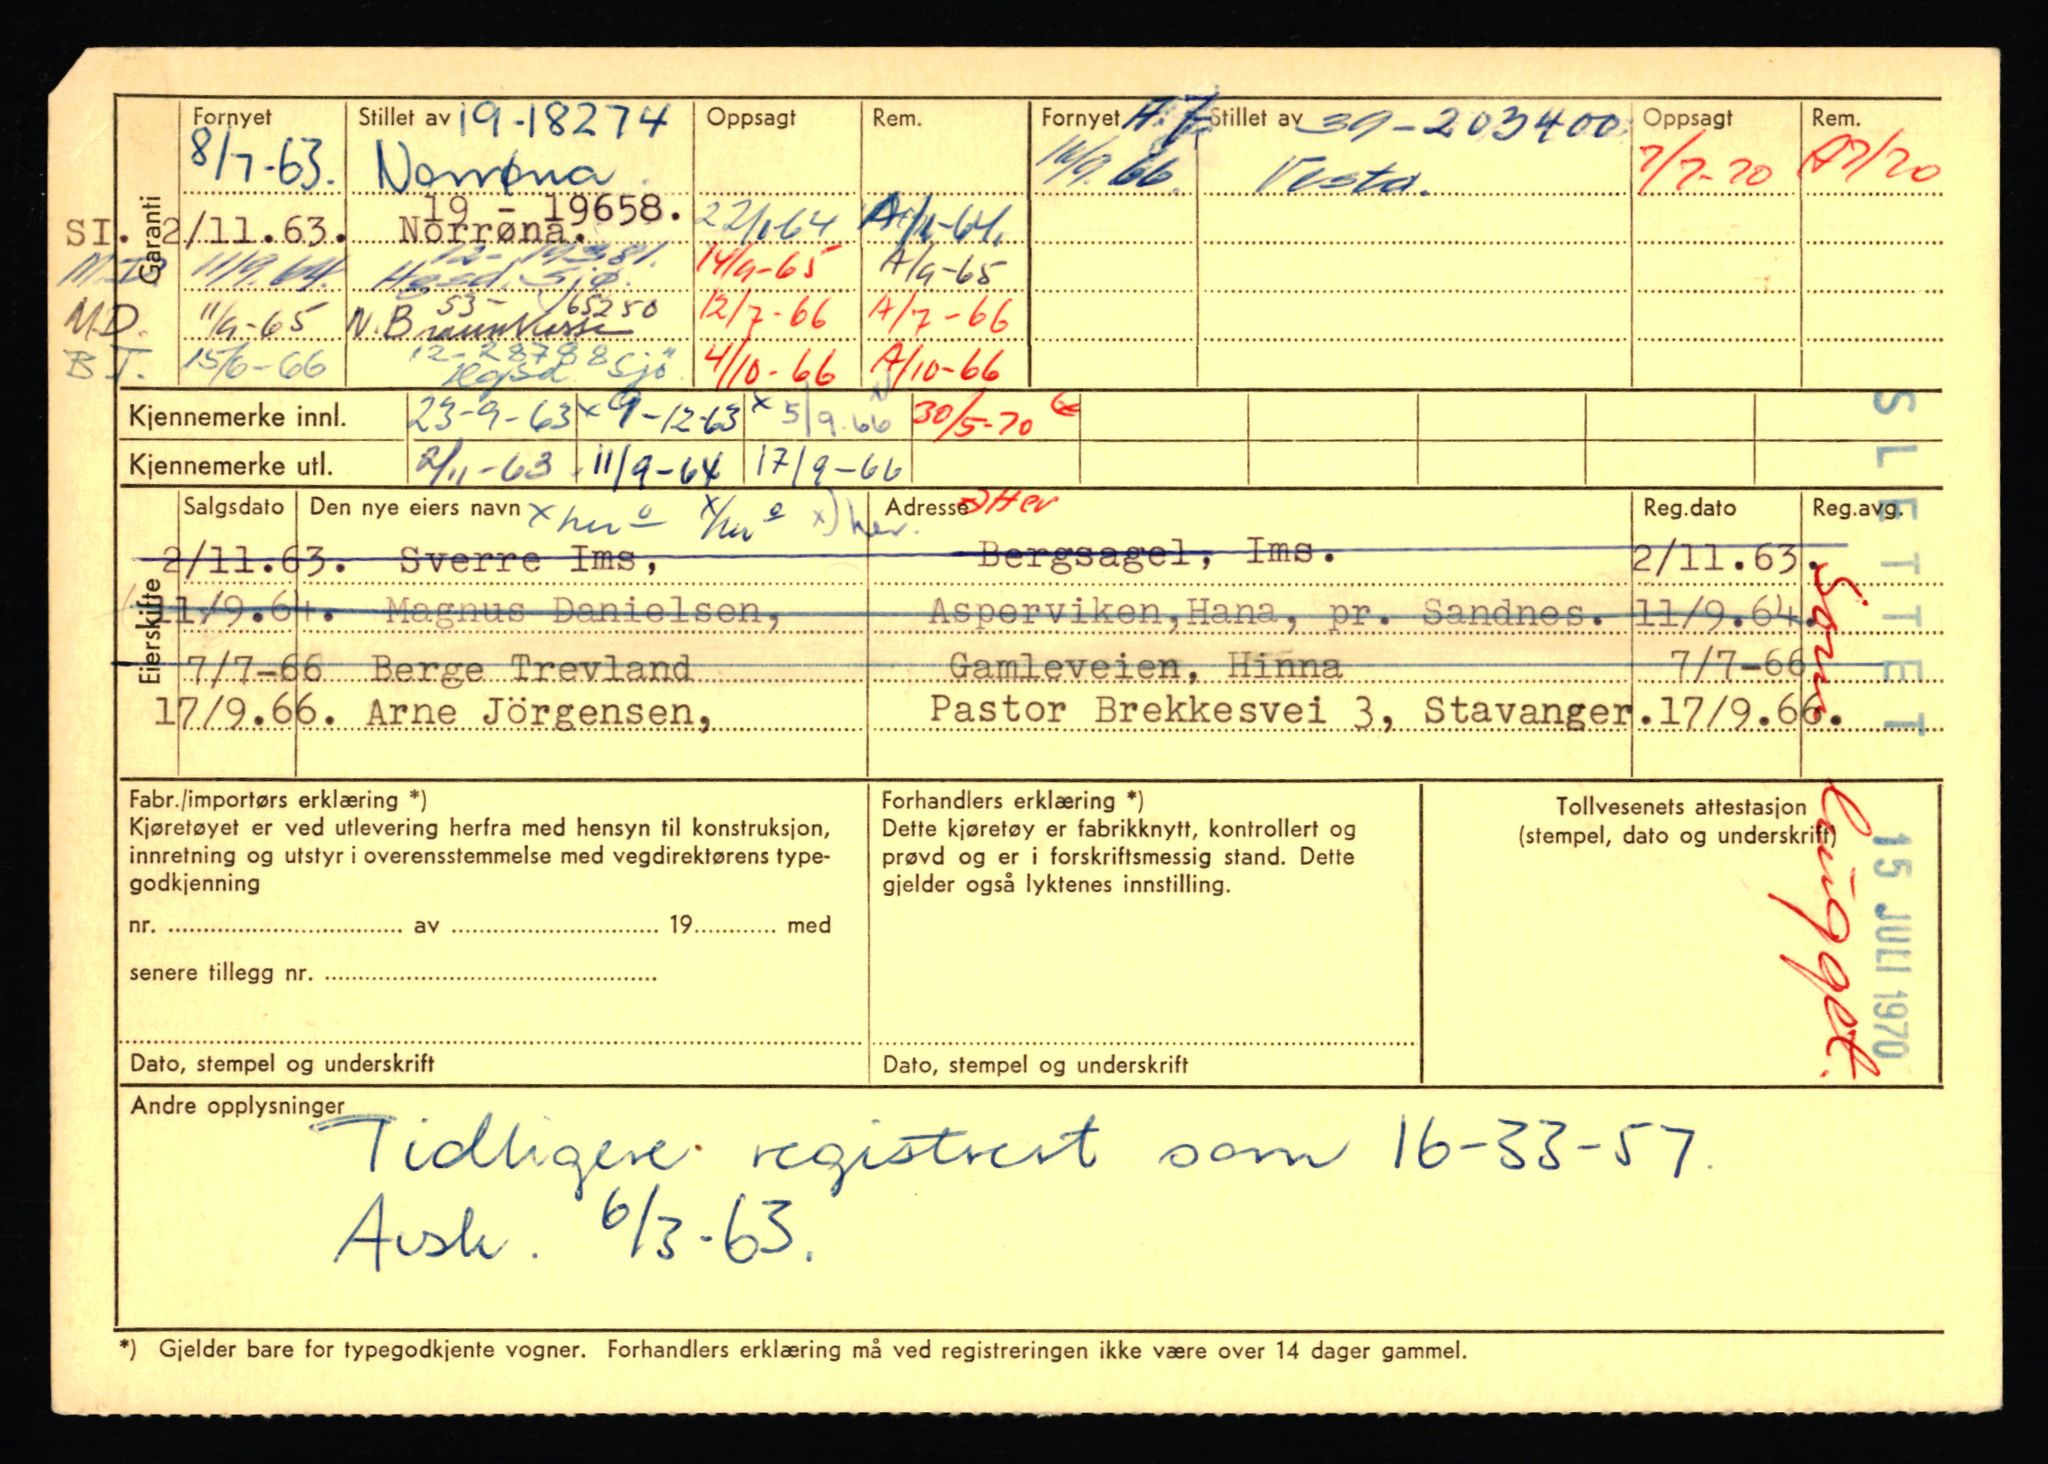 Garanti
Fornyet Stillet av 19-18274 Oppsagt Rem. Fornyet Stillet av 39-203400 Oppsagt Rem.
8/7-63. Norrøna. 14/9.66. Vesta. 7/7-70 A7/70
19 - 19658.
SI. 2/11.63. Norrøna. 22/1-64
M.D. 11/9.64. Hgsd. Sjø. 14/9-65 A/9-65
53-165250
M.D. 11/9-65 N. Brannkasse 12/7-66 A/7-66
12-28788
B T. 15/6-66 Hgsd. Sjö 4/10-66 A/10-66
Kjennemerke innl. 23-9-63 x 9-12-63 x 5/9.66 30/5-70
Kjennemerke utl. 2/11-63 11/9-64 17/9-66
Eierskifte
Salgsdato Den nye eiers navn Adresse Reg.dato Reg.avg.
2/11.63. Sverre Ims, Bergsagel, Ims. 2/11.63.
11/9.64. Magnus Danielsen, Asperviken, Hana, pr. Sandnes. 11/9.64.
7/7-66 Berge Trevland Gamleveien, Hinna 7/7-66
17/9.66. Arne Jörgensen, Pastor Brekkesvei 3, Stavanger. 17/9.66.
SLETTET
15 JULI 1970
Fabr./importørs erklæring *)
Kjøretøyet er ved utlevering herfra med hensyn til konstruksjon,
innretning og utstyr i overensstemmelse med vegdirektørens type-
godkjenning
nr. av 19 med
senere tillegg nr.
Dato, stempel og underskrift
Forhandlers erklæring *)
Dette kjøretøy er fabrikknytt, kontrollert og
prøvd og er i forskriftsmessig stand. Dette
gjelder også lyktenes innstilling.
Dato, stempel og underskrift
Tollvesenets attestasjon
(stempel, dato og underskrift)
Andre opplysninger
Tidligere registrert som 16-33-57.
Avsk. 6/3-63.
*) Gjelder bare for typegodkjente vogner. Forhandlers erklæring må ved registreringen ikke være over 14 dager gammel.